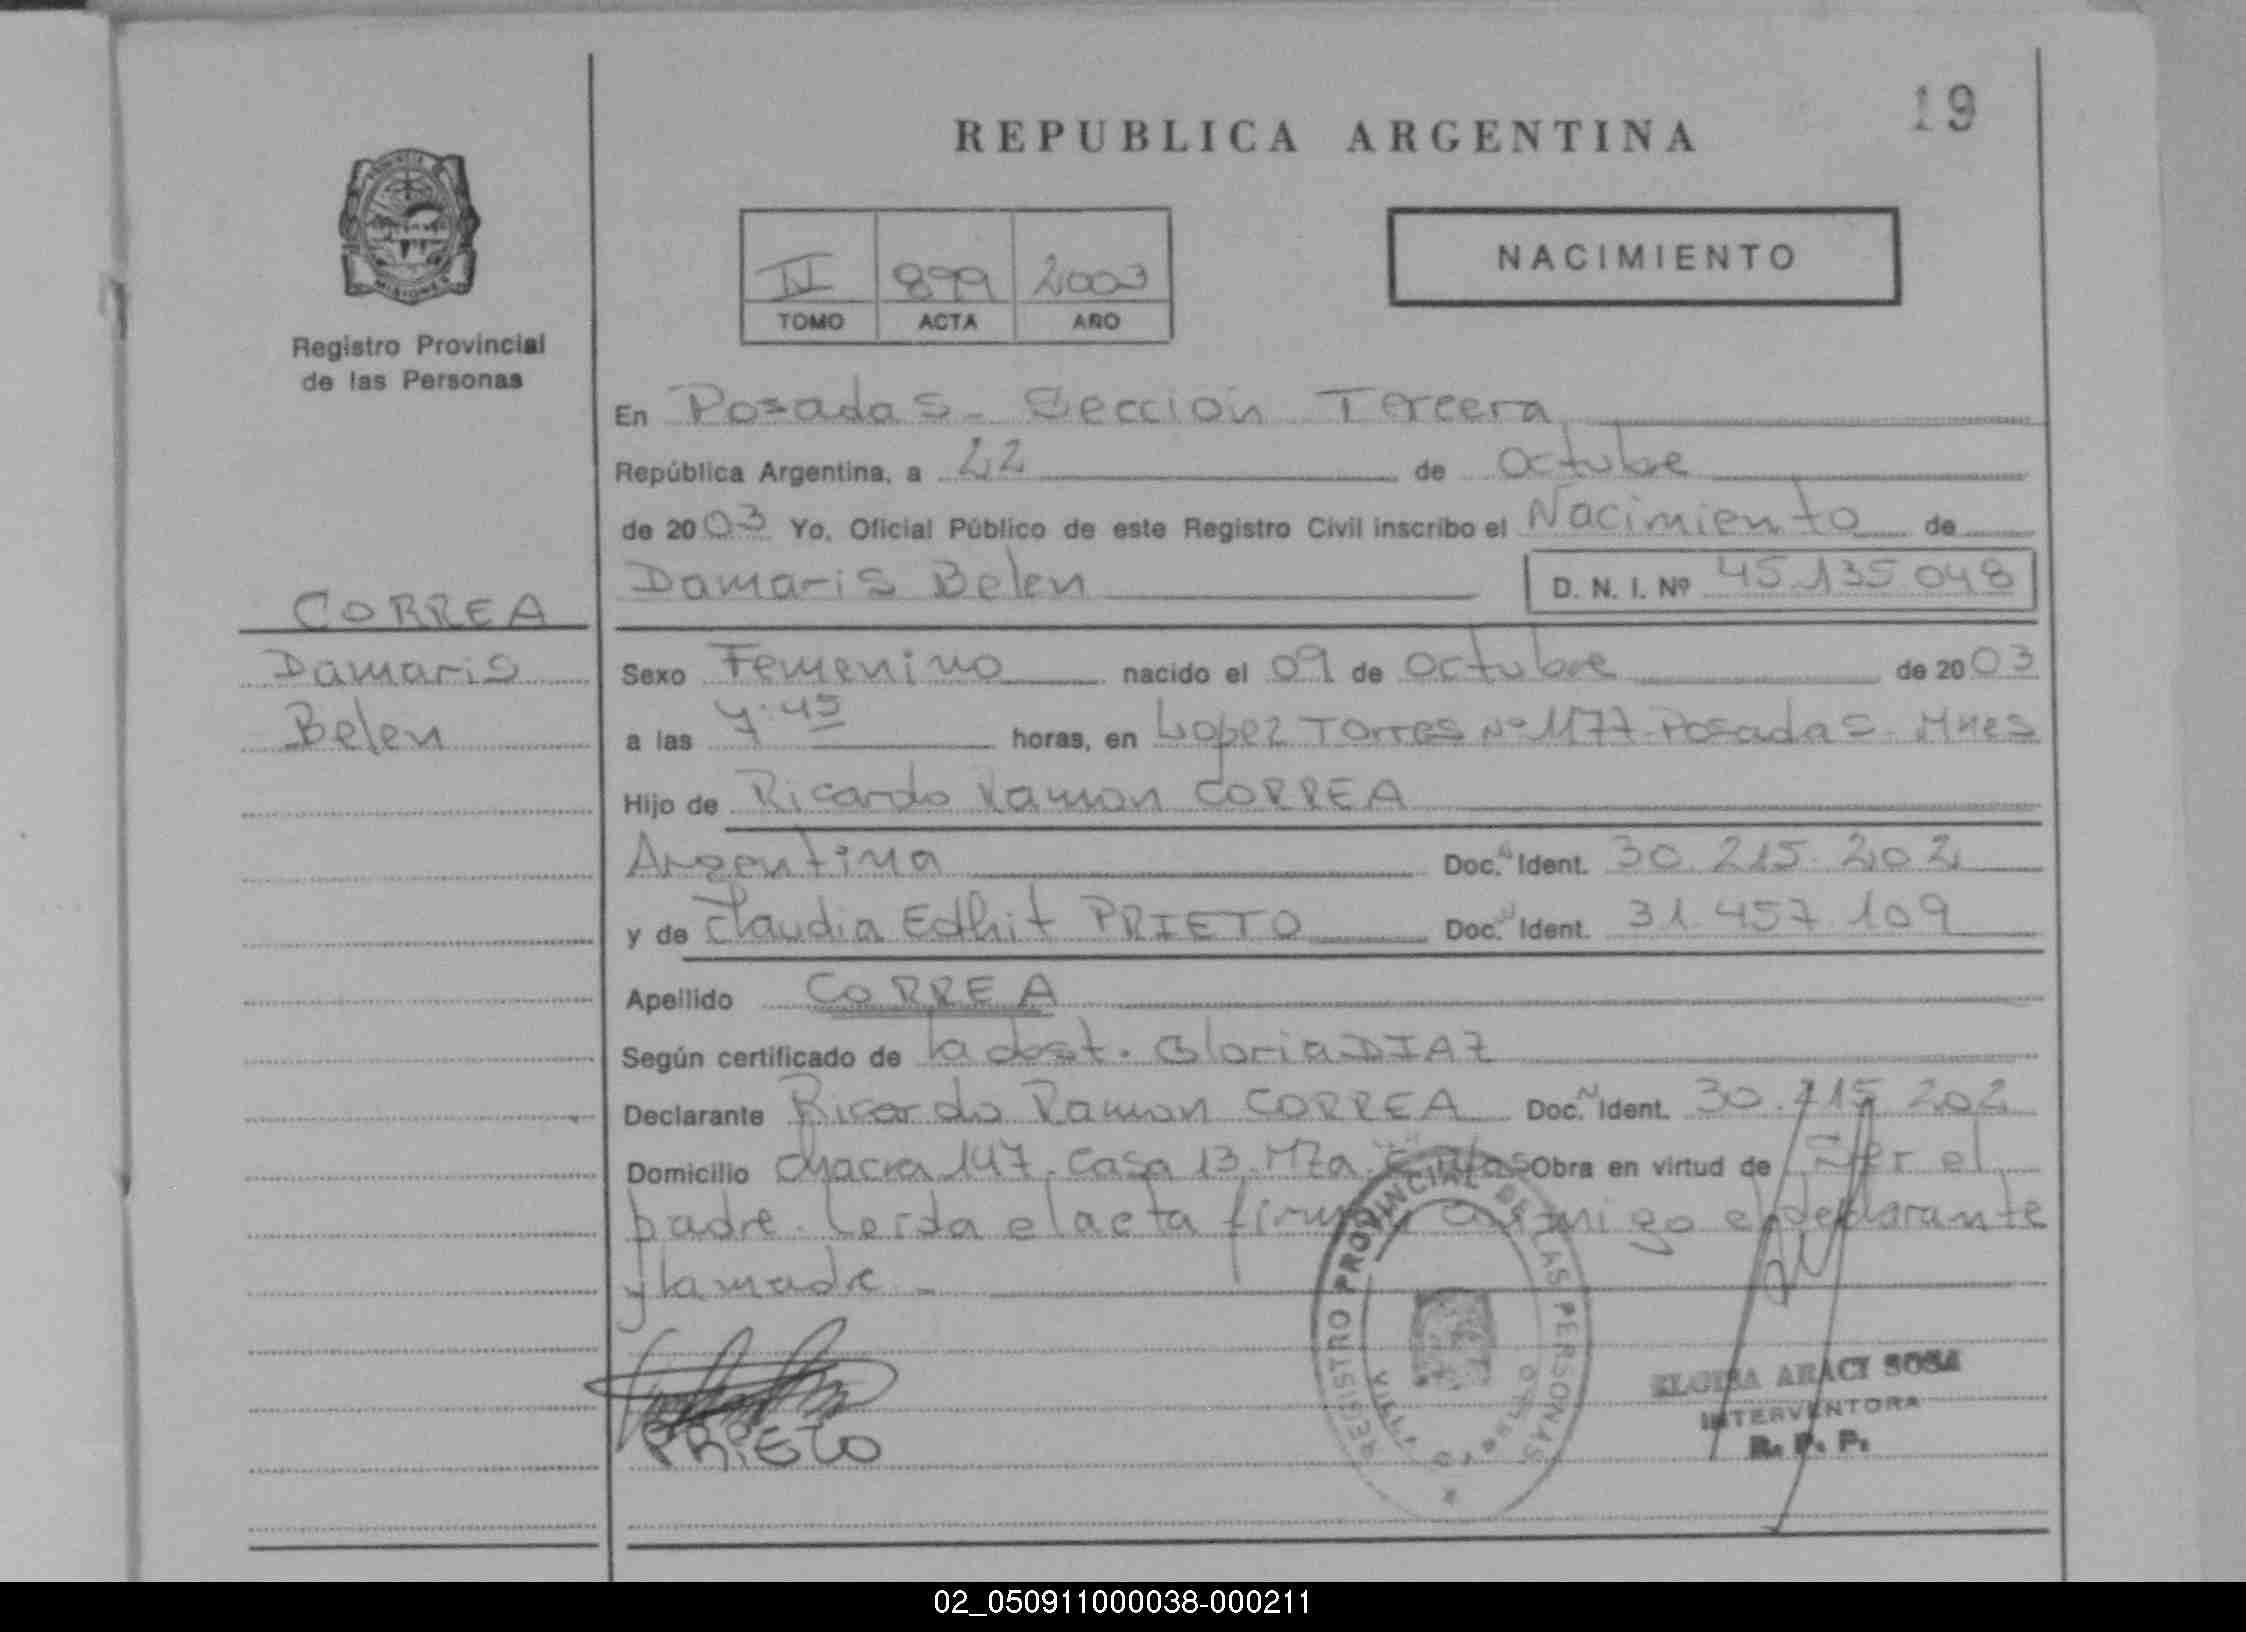 REPUBLICA ARGENTINA
19
Registro Provincial
de las Personas
IV 899 2003
TOMO ACTA AÑO
NACIMIENTO
En Posadas - Sección Tercera
República Argentina, a 22 de Octubre
de 2003 Yo, Oficial Público de este Registro Civil inscribo el Nacimiento de
Damaris Belen D. N. I. Nº 45.135.048
CORREA
Damaris
Belen
Sexo Femenino nacido el 09 de octubre de 2003
a las 7:45 horas, en Lopez Torres Nº 1177-Posadas-Mnes
Hijo de Ricardo Ramon CORREA
Argentina Doc. Ident. 30.215.202
y de Claudia Edhit PRIETO Doc. Ident. 31.457.109
Apellido CORREA
Según certificado de la obst. Gloria DIAZ
Declarante Ricardo Ramon CORREA Doc. Ident. 30.215.202
Domicilio chacra 147. Casa 13. Mza. Obra en virtud de Ser el
padre. Leída el acta firma conmigo el declarante
y la madre -
REGISTRO PROVINCIAL DE LAS PERSONAS
PRIETO
ARACI SOSA
INTERVENTORA
R. P. P.
02_050911000038-000211